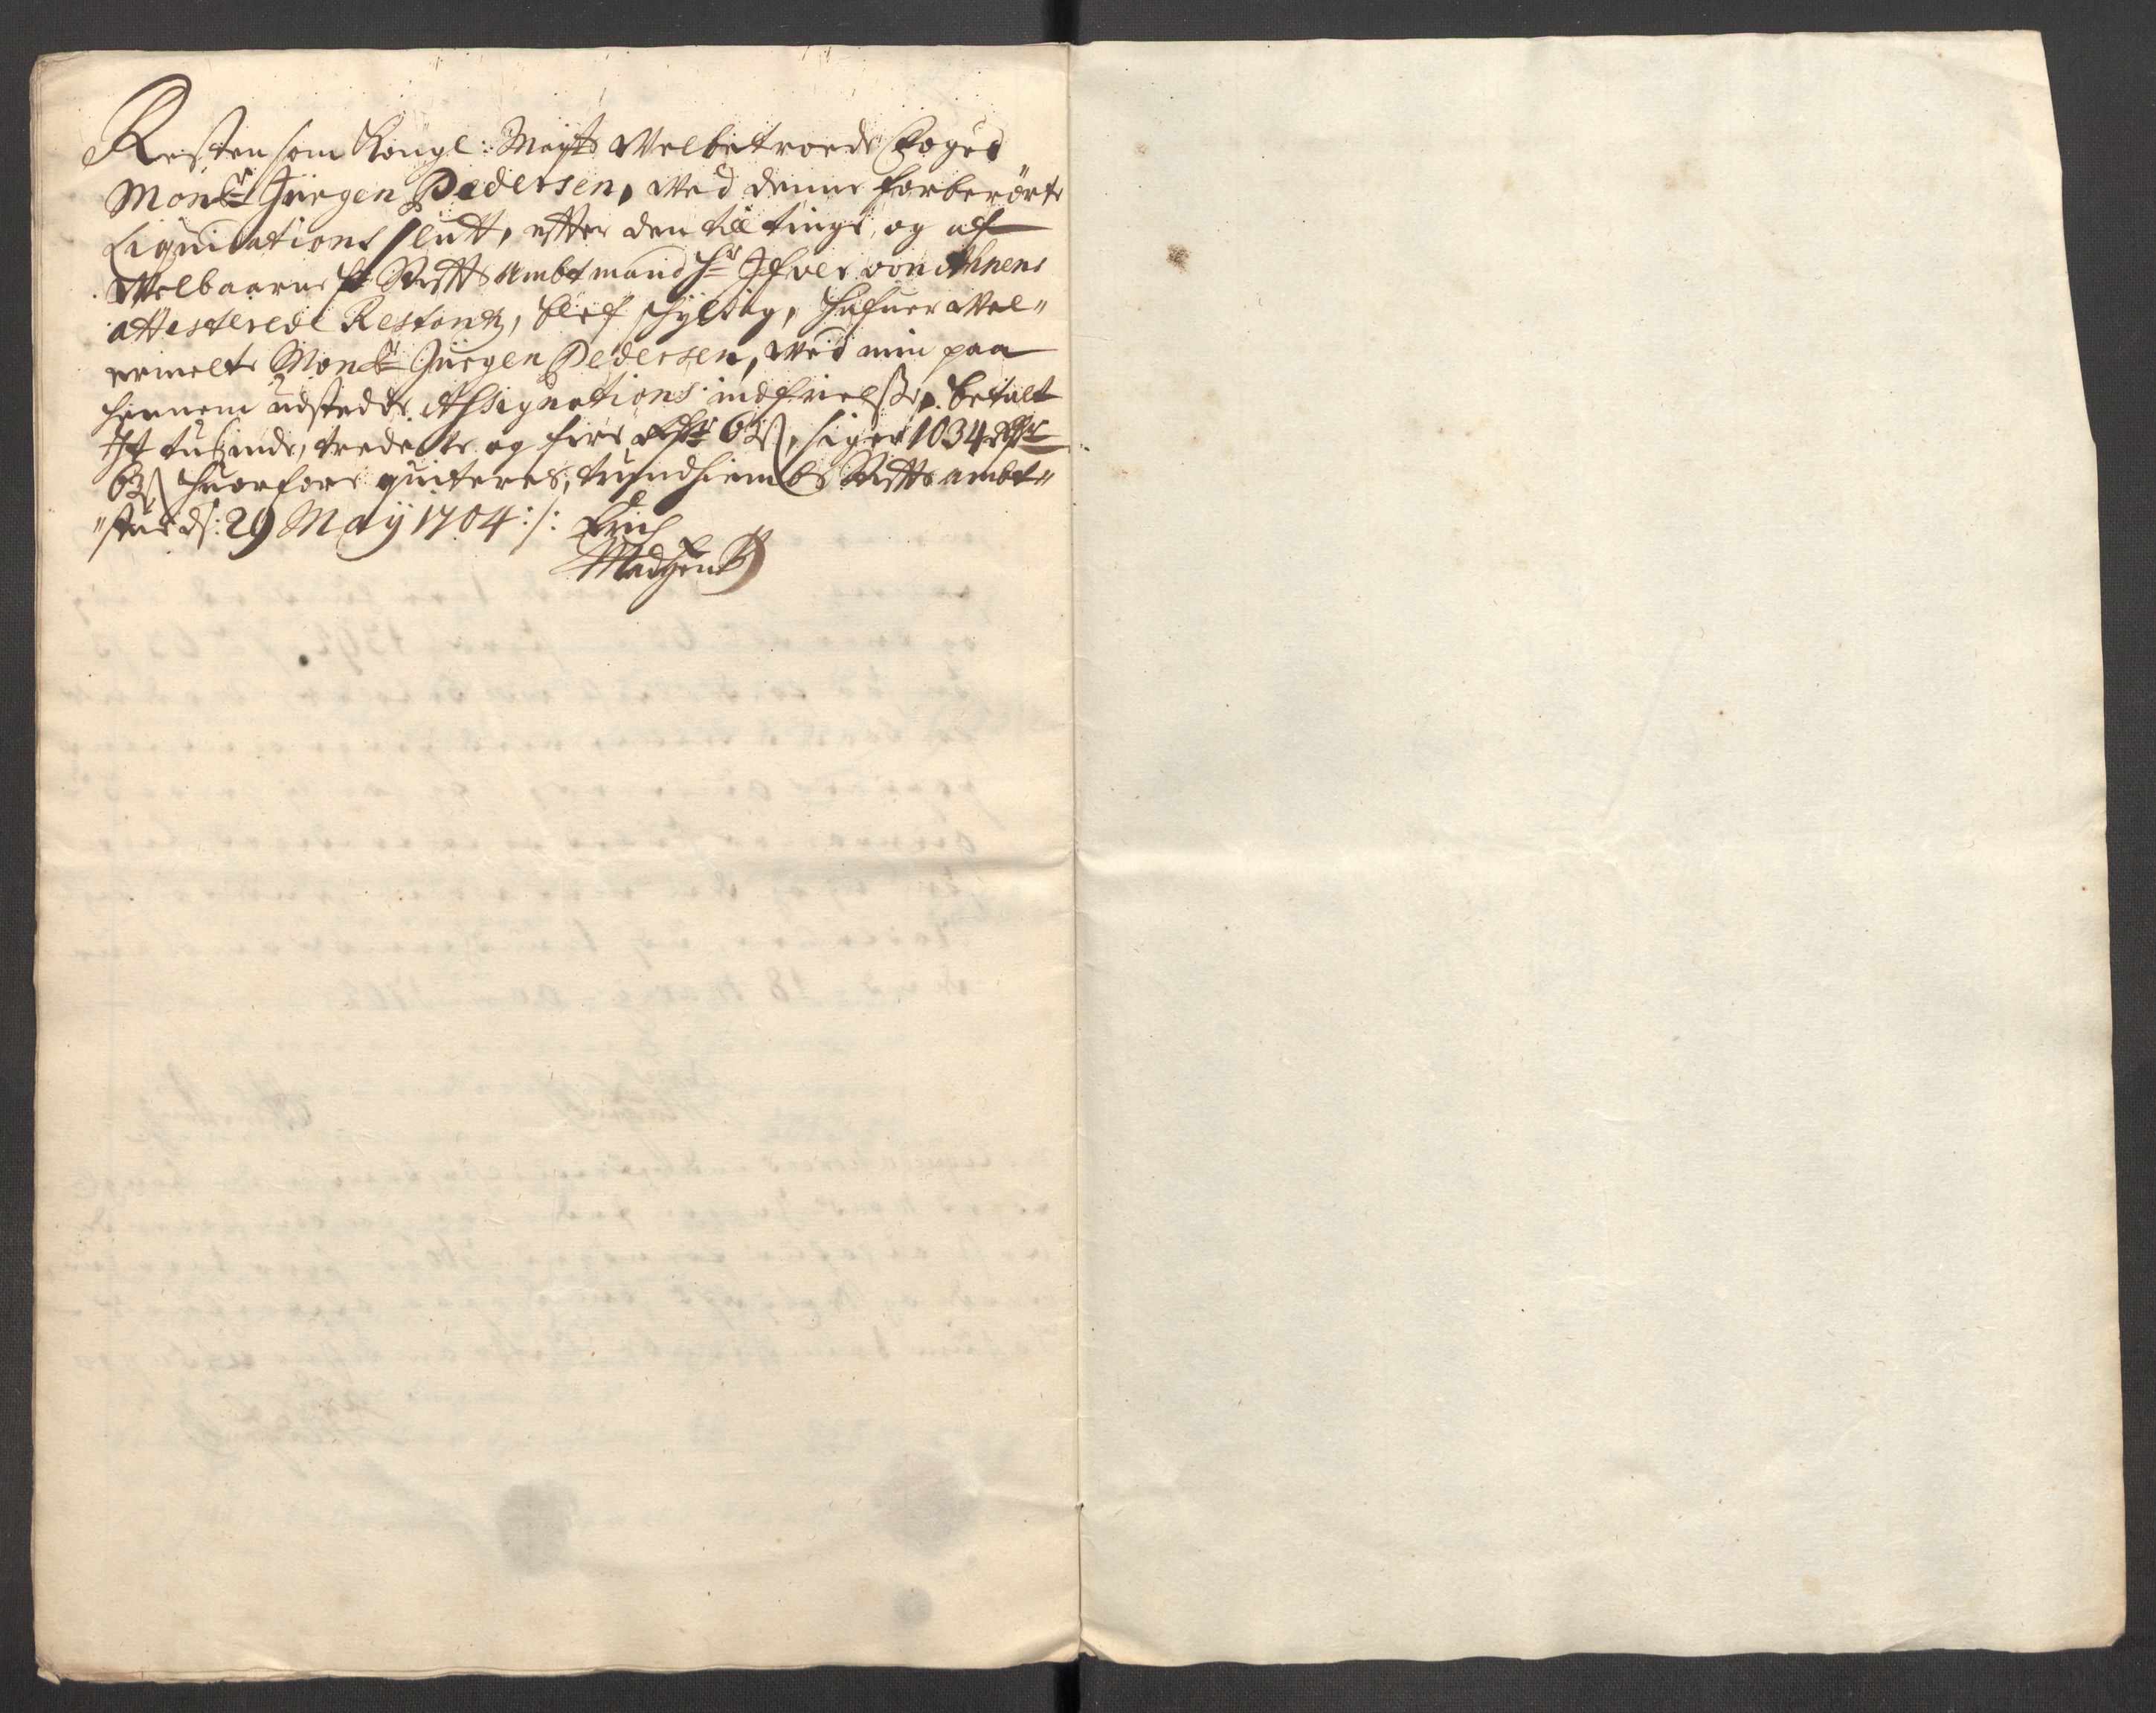 Resten som Kongl: Mayts Welbetroede Foged
Monsr Jürgen Pedersen, Wed denne forberörte
Liquidations slutt, effter den till tings, og aff
Welbaarne hr Stiffts Ambtmand Hr Ifver von Ahnens
attesterede Restantz, blef schyldig, hafuer Wel"
ermelte Monsr Jürgen Pedersen, Wed min paa
hannem udstedde Assignations indfrielsse, betalt
Et tußinde, tredeſve og fire rdr 63 ß, siger 1034 rdr
63 ß huorfore quiteres, trundhiembs Stiffts ambt"
"stue ds: 29 May 1704 :/: Erich
Madsen